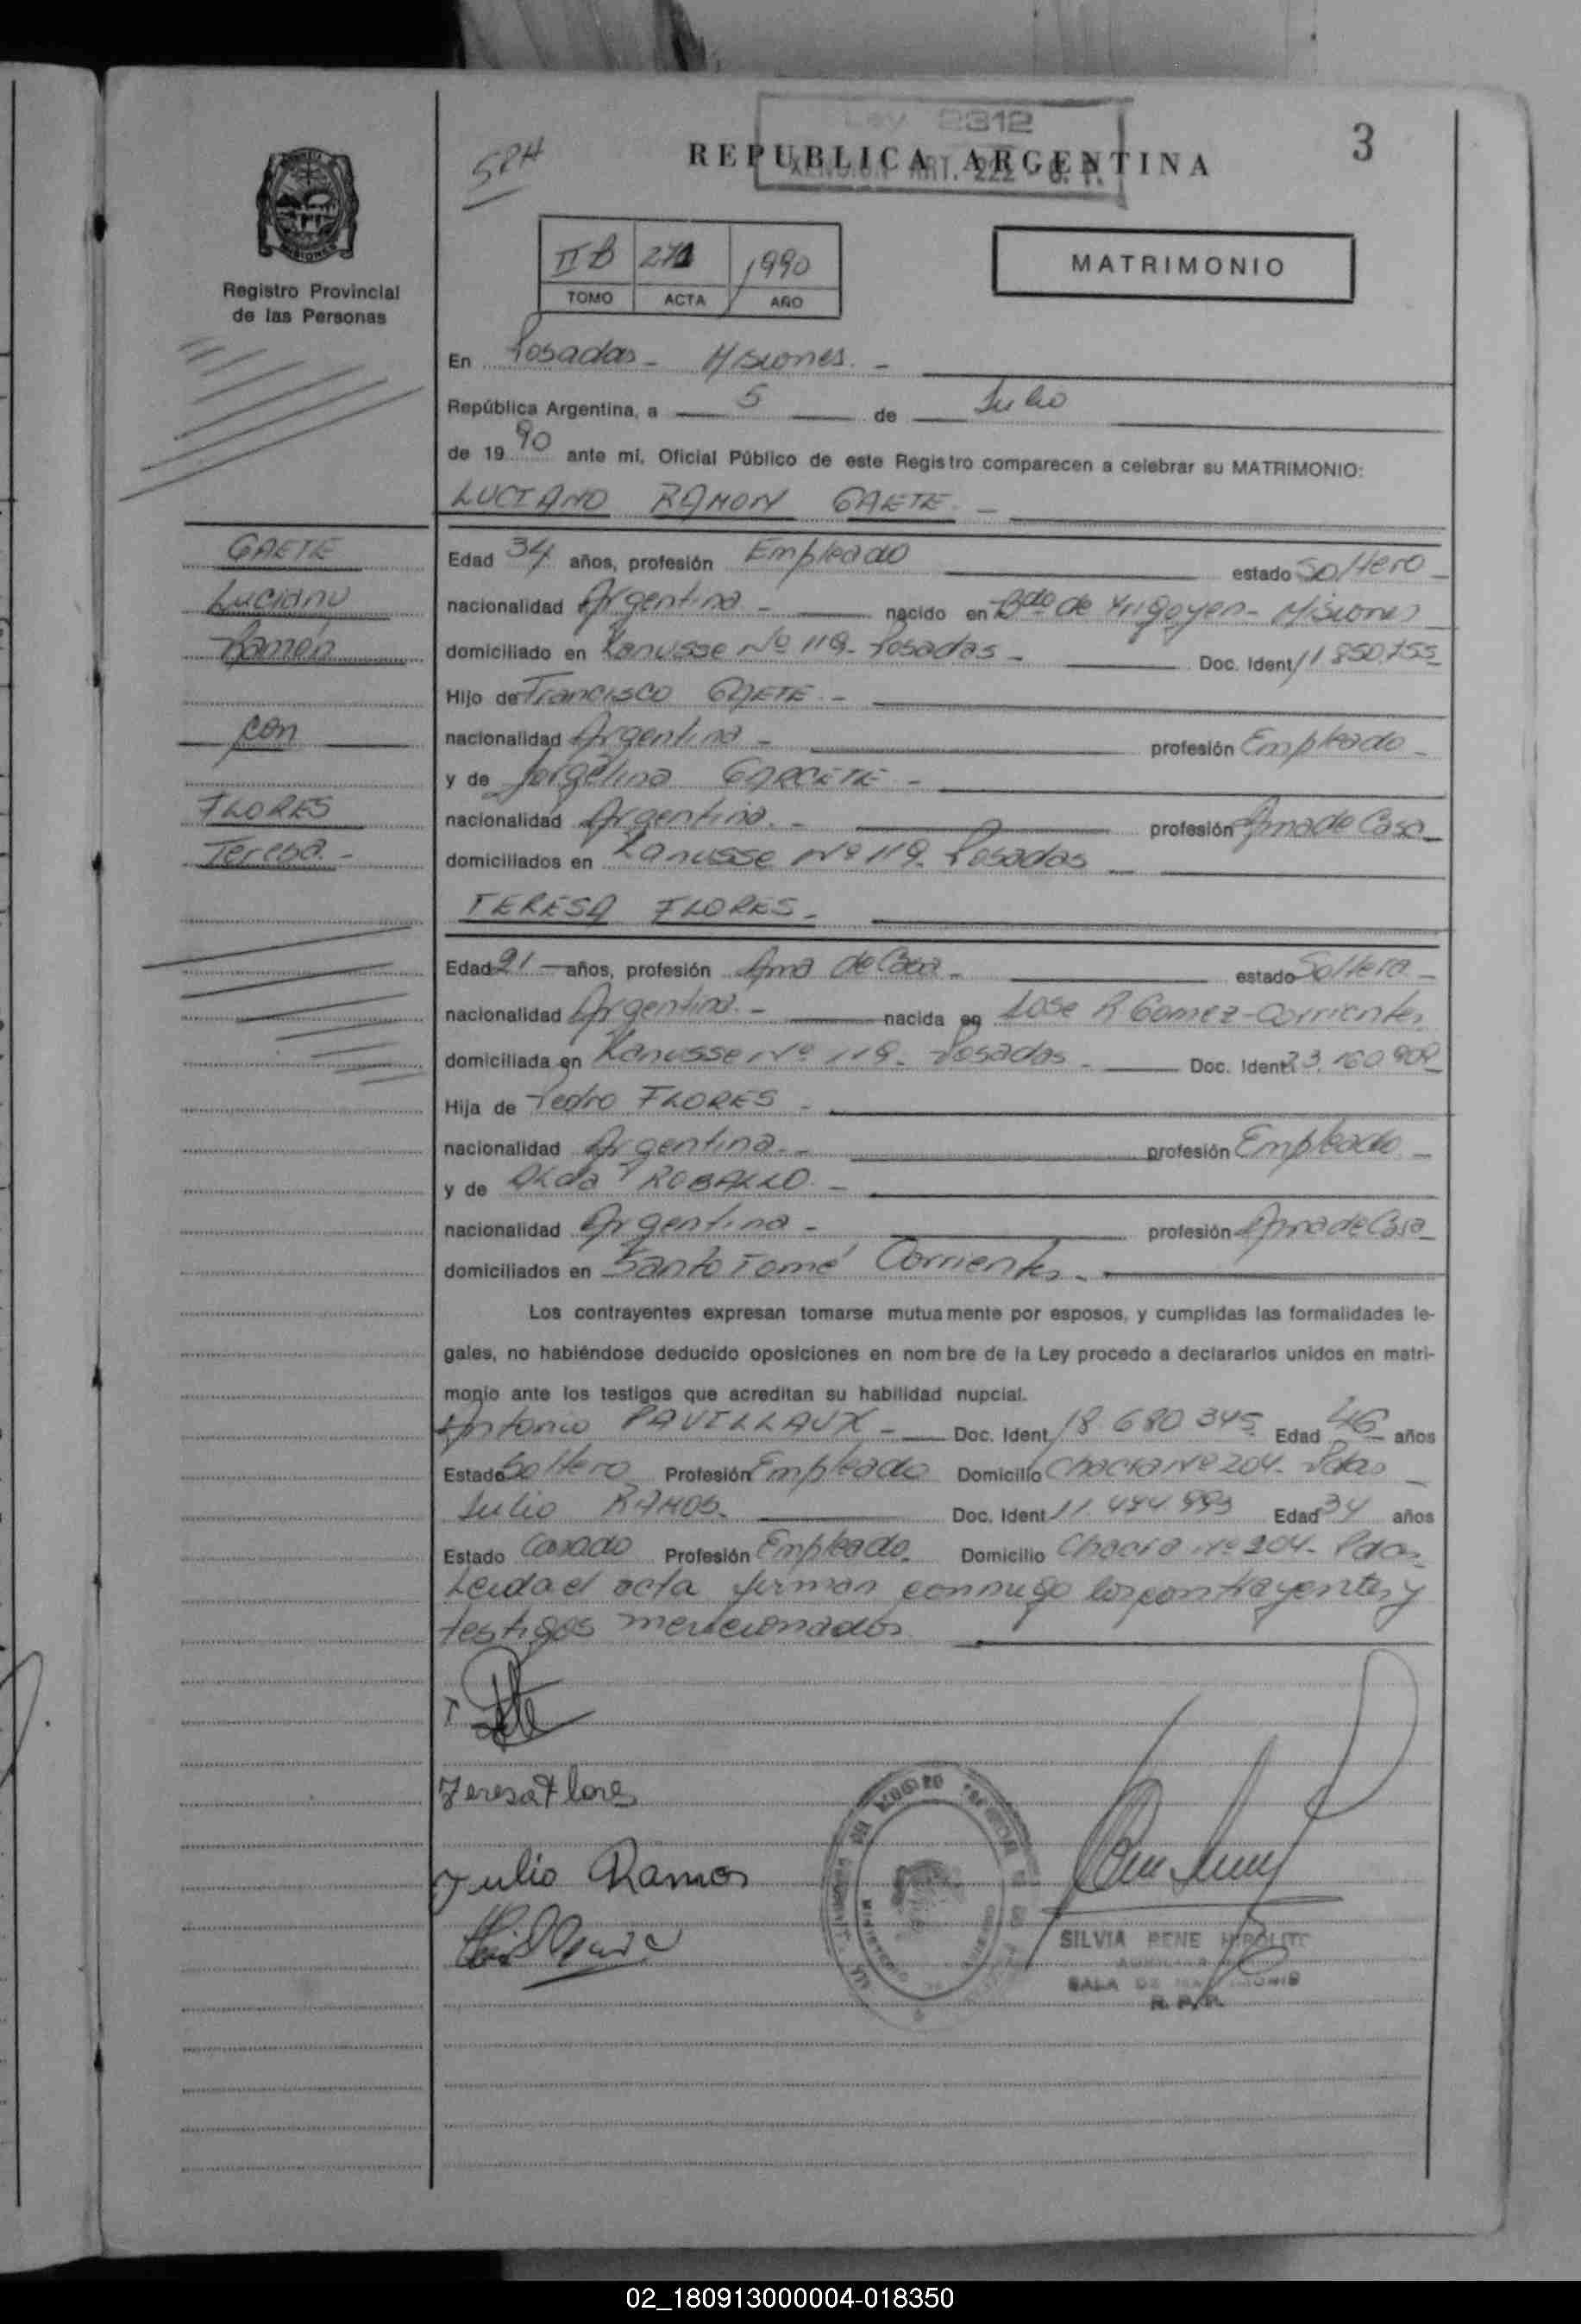 Ley 2312
ART. 222
3
SRH
REPUBLICA ARGENTINA
MISIONES
Registro Provincial
de las Personas
II B 271 1990
TOMO ACTA AÑO
MATRIMONIO
En Posadas - Misiones. -
República Argentina, a 5 de Julio
de 1990 ante mí, Oficial Público de este Registro comparecen a celebrar su MATRIMONIO:
LUCIANO RAMON GAETE. -
GAETE
Luciano
Ramón
con
FLORES
Teresa. -
Edad 34 años, profesión Empleado estado Soltero -
nacionalidad Argentina - nacido en Bdo de Yrigoyen - Misiones
domiciliado en Lanusse Nº 119 - Posadas - Doc. Ident. 11.850.755
Hijo de Francisco GAETE - 
nacionalidad Argentina - profesión Empleado -
y de Jorgelina GARCETE -
nacionalidad Argentina. - profesión Ama de Casa -
domiciliados en Lanusse Nº 119. Posadas -
TERESA FLORES -
Edad 21 años, profesión Ama de Casa - estado Soltera -
nacionalidad Argentina. - nacida en José R Gomez - Corrientes
domiciliada en Lanusse Nº 119 - Posadas - Doc. Ident. 23.160.909
Hija de Pedro FLORES -
nacionalidad Argentina. - profesión Empleado -
y de Alda ROBALLO -
nacionalidad Argentina - profesión Ama de Casa
domiciliados en Santo Tomé Corrientes -
Los contrayentes expresan tomarse mutuamente por esposos, y cumplidas las formalidades le-
gales, no habiéndose deducido oposiciones en nombre de la Ley procedo a declararlos unidos en matri-
monio ante los testigos que acreditan su habilidad nupcial.
Antonio PAVILLAUX - Doc. Ident. 18.680.345 Edad 46 años
Estado Soltero Profesión Empleado Domicilio Chacra Nº 204 - Pdas -
Julio RAMOS. Doc. Ident. 11.494.993 Edad 34 años
Estado Casado Profesión Empleado. Domicilio Chacra Nº 204 - Pdas
Leida el acta firman conmigo los contrayentes y
testigos mencionados
Teresa Flores
Julio Ramos
SILVIA RENE HIPOLITO
AUXILIAR
SALA DE MATRIMONIO
R. P. P.
02_180913000004-018350